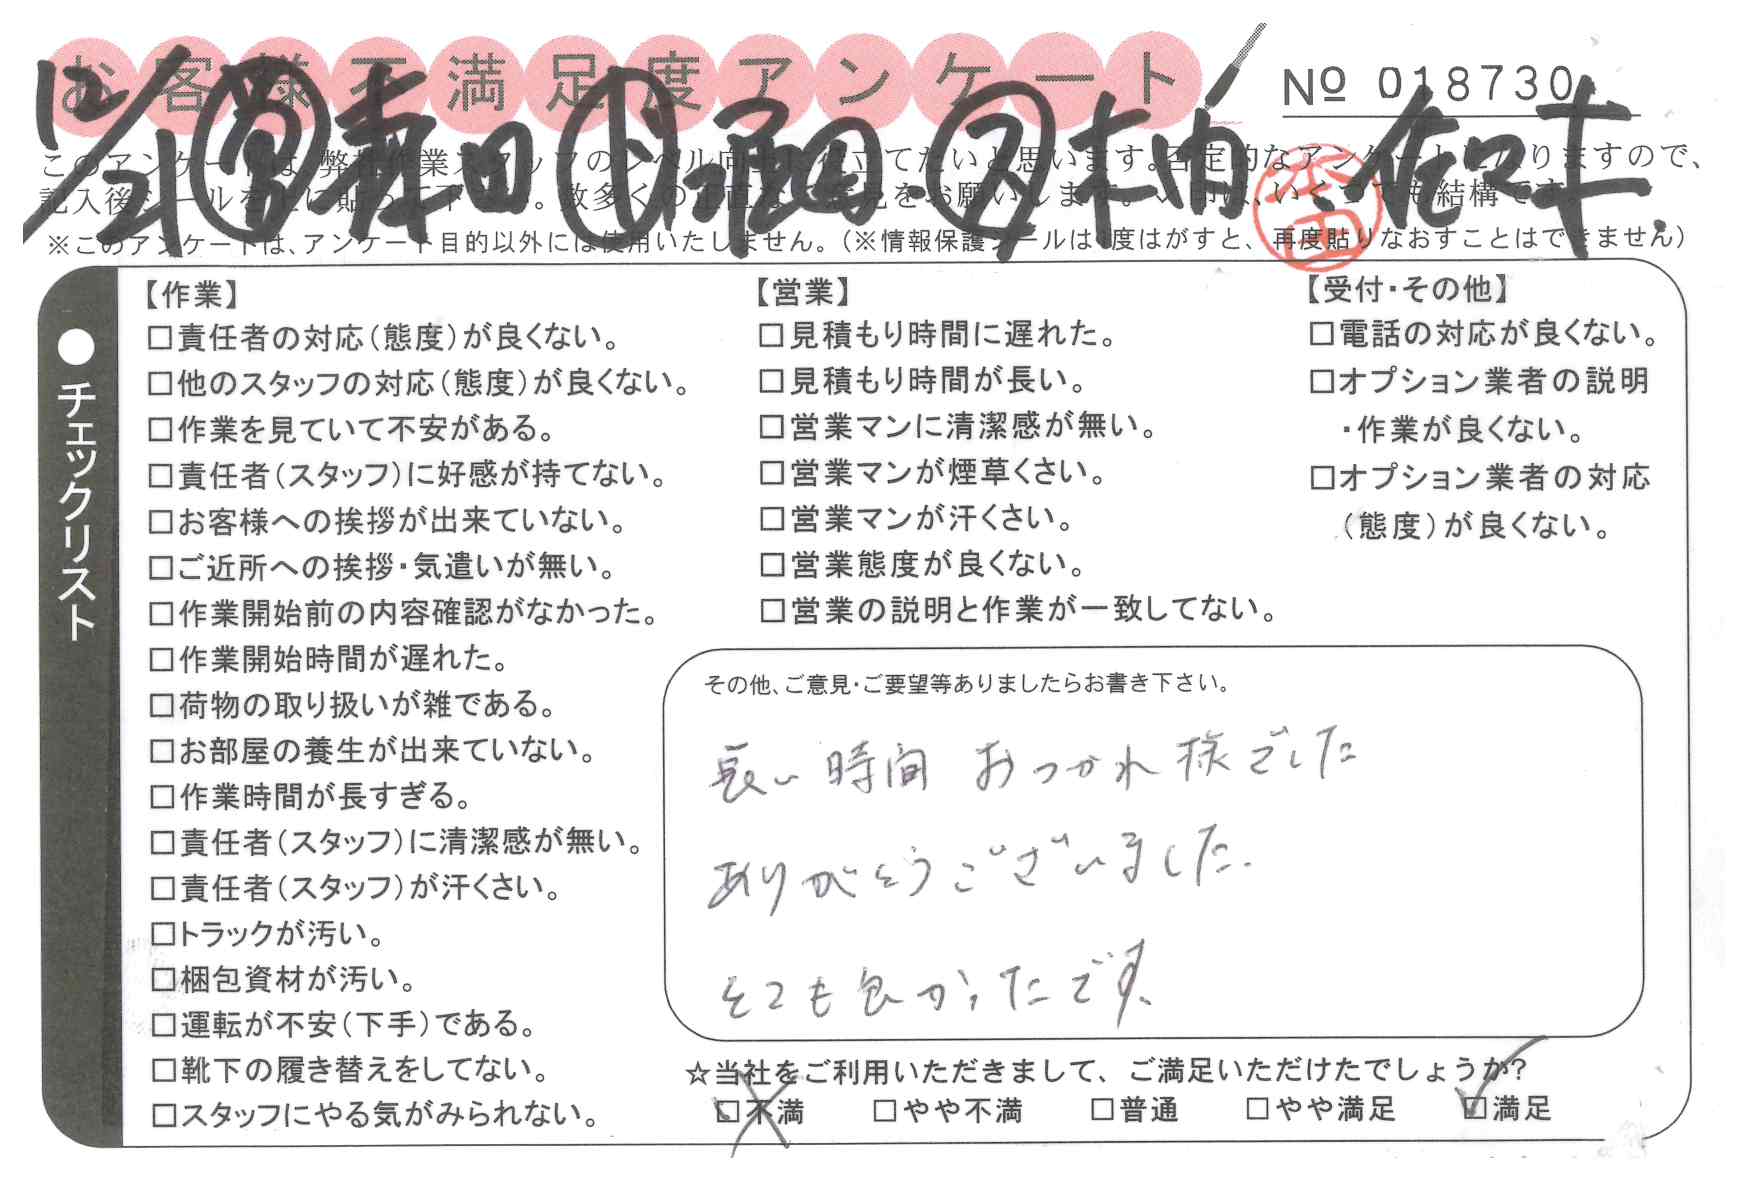 お客様不満足度アンケート
№ 018730
12/21 営 森田 ト 福岡・ア 木内・佐々木
このアンケートは、弊社作業スタッフのレベル向上に役立てたいと思います。否定的なアンケートになりますので、
記入後シールを上に貼って下さい。数多くの正直なご意見をお願いします。✓印は、いくつでも結構です。
※このアンケートは、アンケート目的以外には使用いたしません。（※情報保護シールは1度はがすと、再度貼りなおすことはできません）
●チェックリスト
【作業】
□責任者の対応（態度）が良くない。
□他のスタッフの対応（態度）が良くない。
□作業を見ていて不安がある。
□責任者（スタッフ）に好感が持てない。
□お客様への挨拶が出来ていない。
□ご近所への挨拶・気遣いが無い。
□作業開始前の内容確認がなかった。
□作業開始時間が遅れた。
□荷物の取り扱いが雑である。
□お部屋の養生が出来ていない。
□作業時間が長すぎる。
□責任者（スタッフ）に清潔感が無い。
□責任者（スタッフ）が汗くさい。
□トラックが汚い。
□梱包資材が汚い。
□運転が不安（下手）である。
□靴下の履き替えをしてない。
□スタッフにやる気がみられない。
【営業】
□見積もり時間に遅れた。
□見積もり時間が長い。
□営業マンに清潔感が無い。
□営業マンが煙草くさい。
□営業マンが汗くさい。
□営業態度が良くない。
□営業の説明と作業が一致してない。
【受付・その他】
□電話の対応が良くない。
□オプション業者の説明
・作業が良くない。
□オプション業者の対応
（態度）が良くない。
その他、ご意見・ご要望等ありましたらお書き下さい。
長い時間 おつかれ様でした
ありがとうございました.
とても良かったです、
☆当社をご利用いただきまして、ご満足いただけたでしょうか？
□不満 □やや不満 □普通 □やや満足 ☑満足